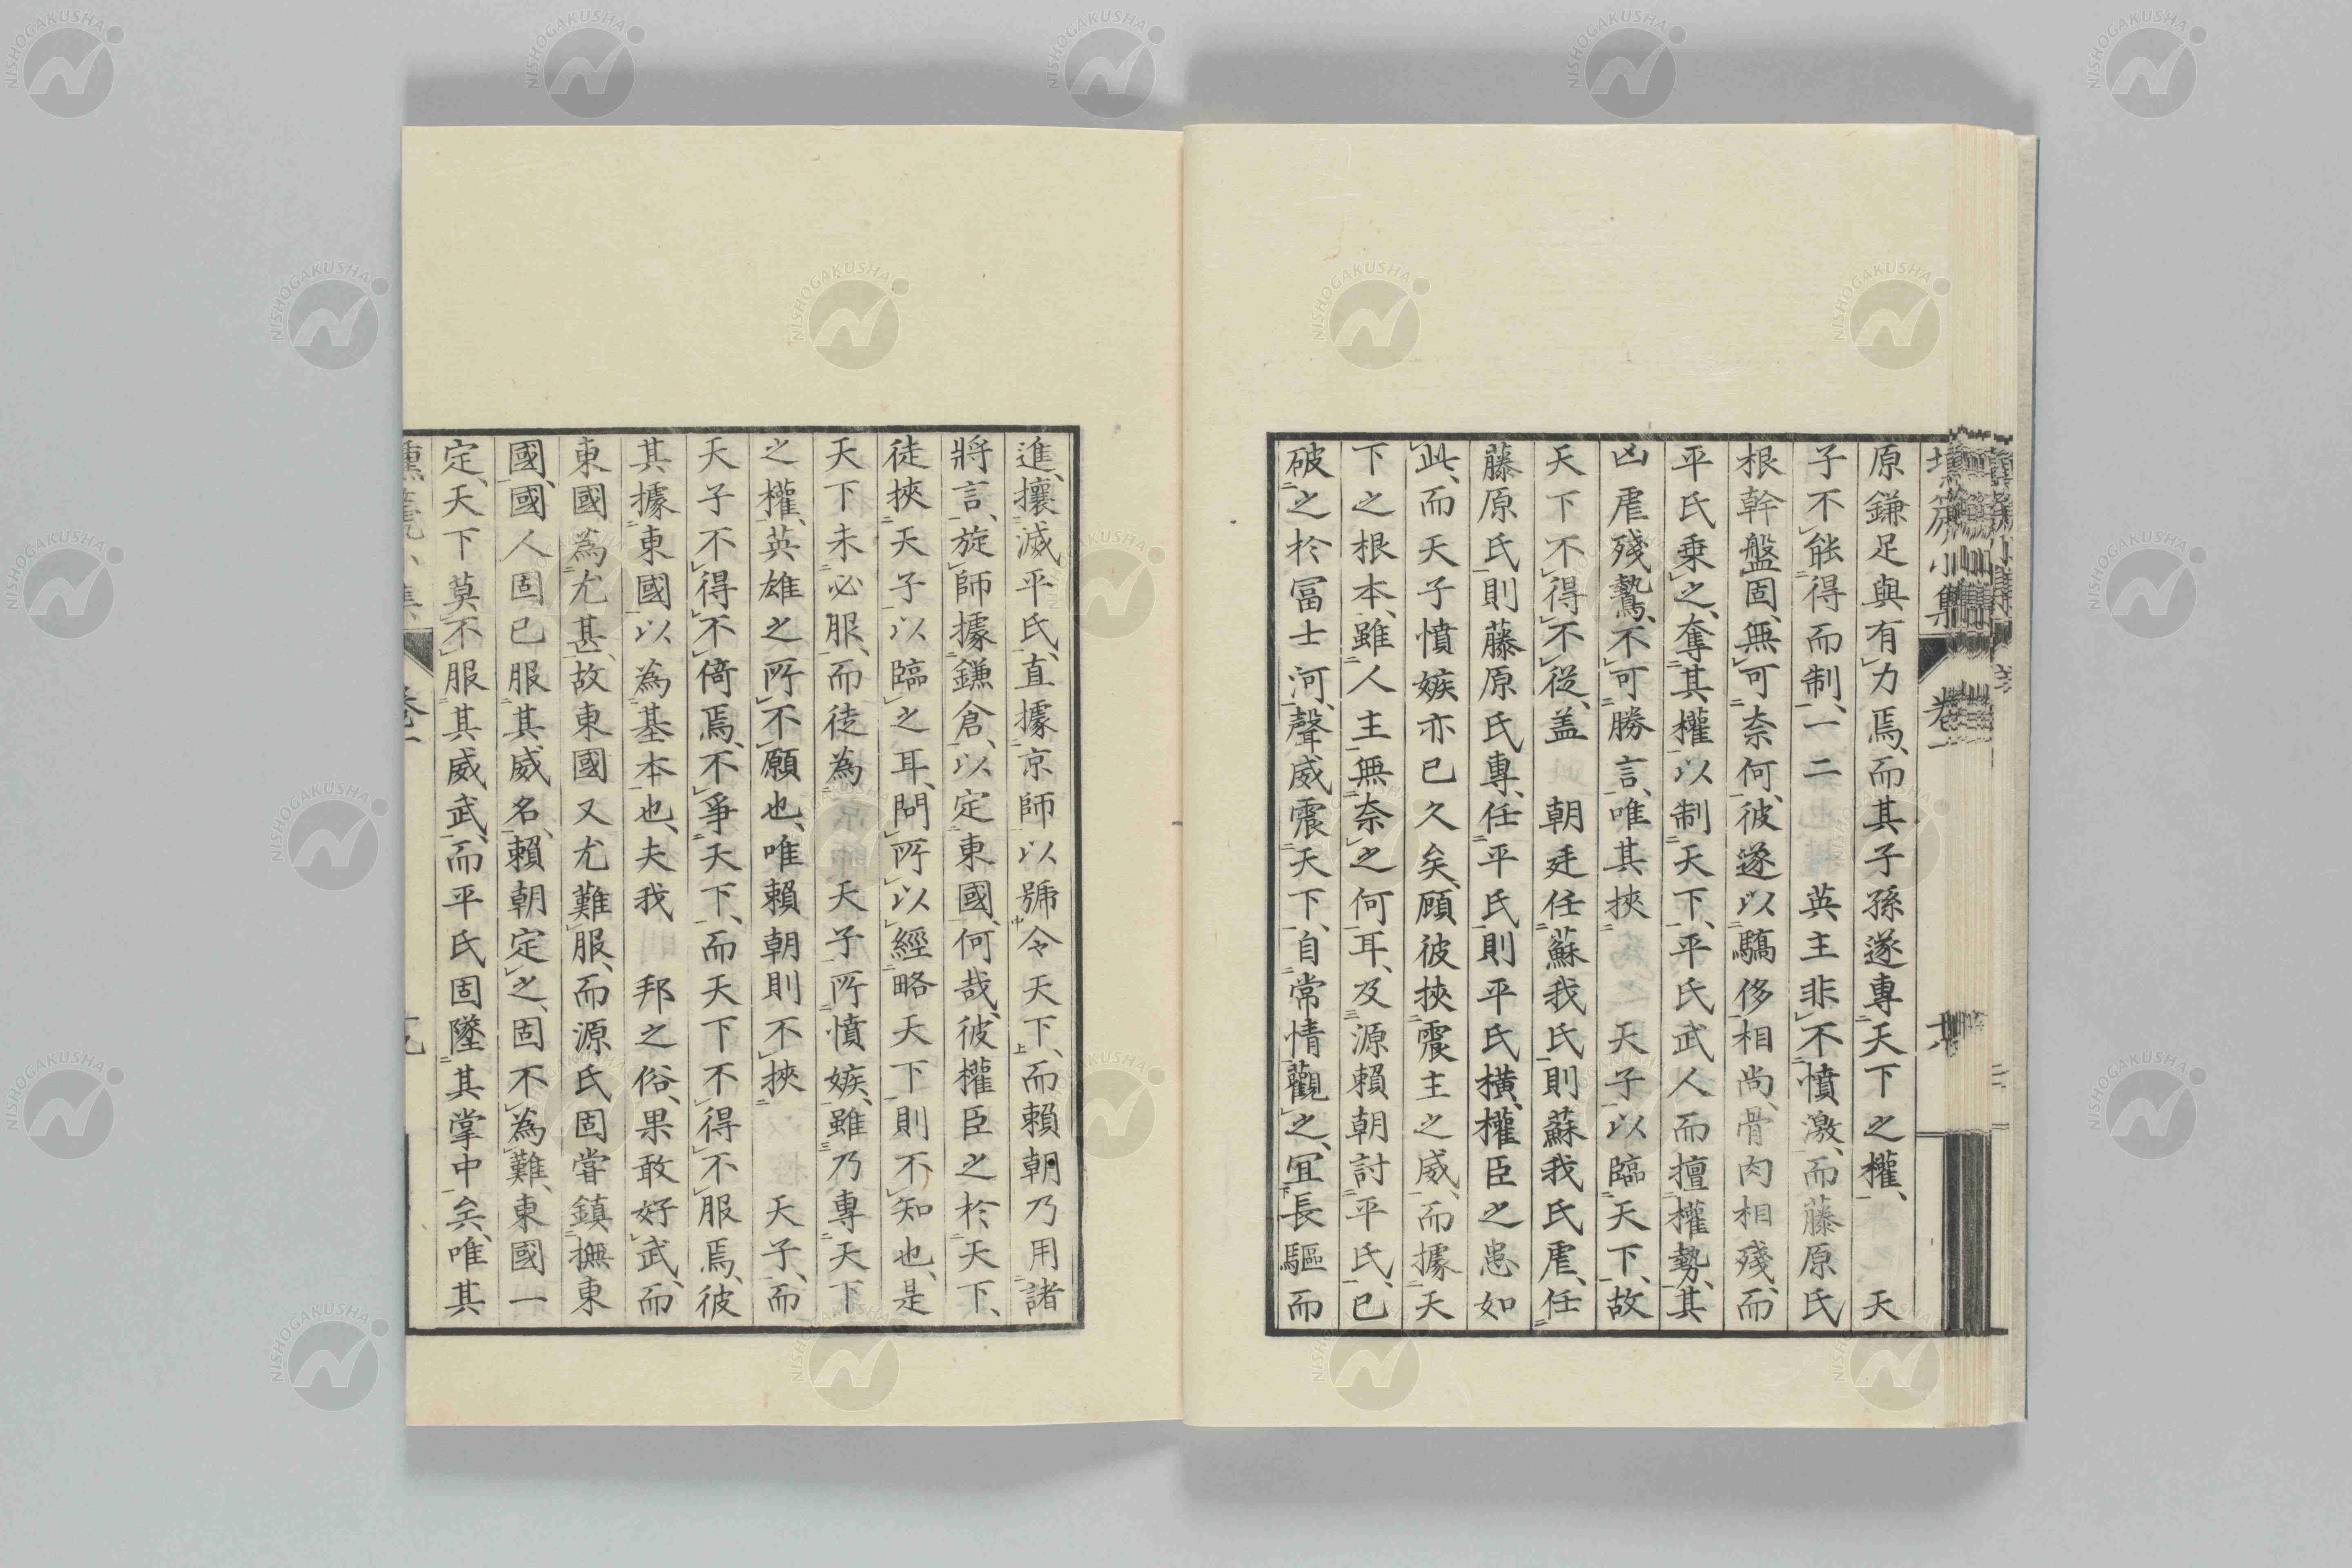 原鎌足與有力焉、而其子孫遂專天下之權、　天
子不能得而制、一二　英主非不憤激、而藤原氏
根幹盤固、無可奈何、彼遂以驕侈相尚、骨肉相殘、而
平氏乗之、奪其權以制天下、平氏武人而擅權勢、其
凶虐殘鷙、不可勝言、唯其挾　天子以臨天下、故
天下不得不從、盖　朝廷任蘇我氏、則蘇我氏虐、任
藤原氏、則藤原氏專、任平氏、則平氏橫、權臣之患如
此、而天子憤嫉亦已久矣、顧彼挾震主之威、而據天
下之根本、雖人主無奈之何耳、及源賴朝討平氏、已
破之於冨士河、聲威震天下、自常情觀之、冝長驅而
進、攘滅平氏、直據京師以號令天下、而賴朝乃用諸
將言、旋師據鎌倉、以定東國、何哉、彼權臣之於天下、
徒挾天子以臨之耳、問所以經略天下、則不知也、是
天下未必服、而徒為　天子所憤嫉、雖乃專天下
之權、英雄之所不願也、唯賴朝則不挾　天子、而
天子不得不倚焉、不爭天下、而天下不得不服焉、彼
其據東國以為基本也、夫我　邦之俗、果敢好武、而
東國為尤甚、故東國又尤難服、而源氏固甞鎮撫東
國、國人固已服其威名、賴朝定之、固不為難、東國一
定、天下莫不服其威武、而平氏固墜其掌中矣、唯其